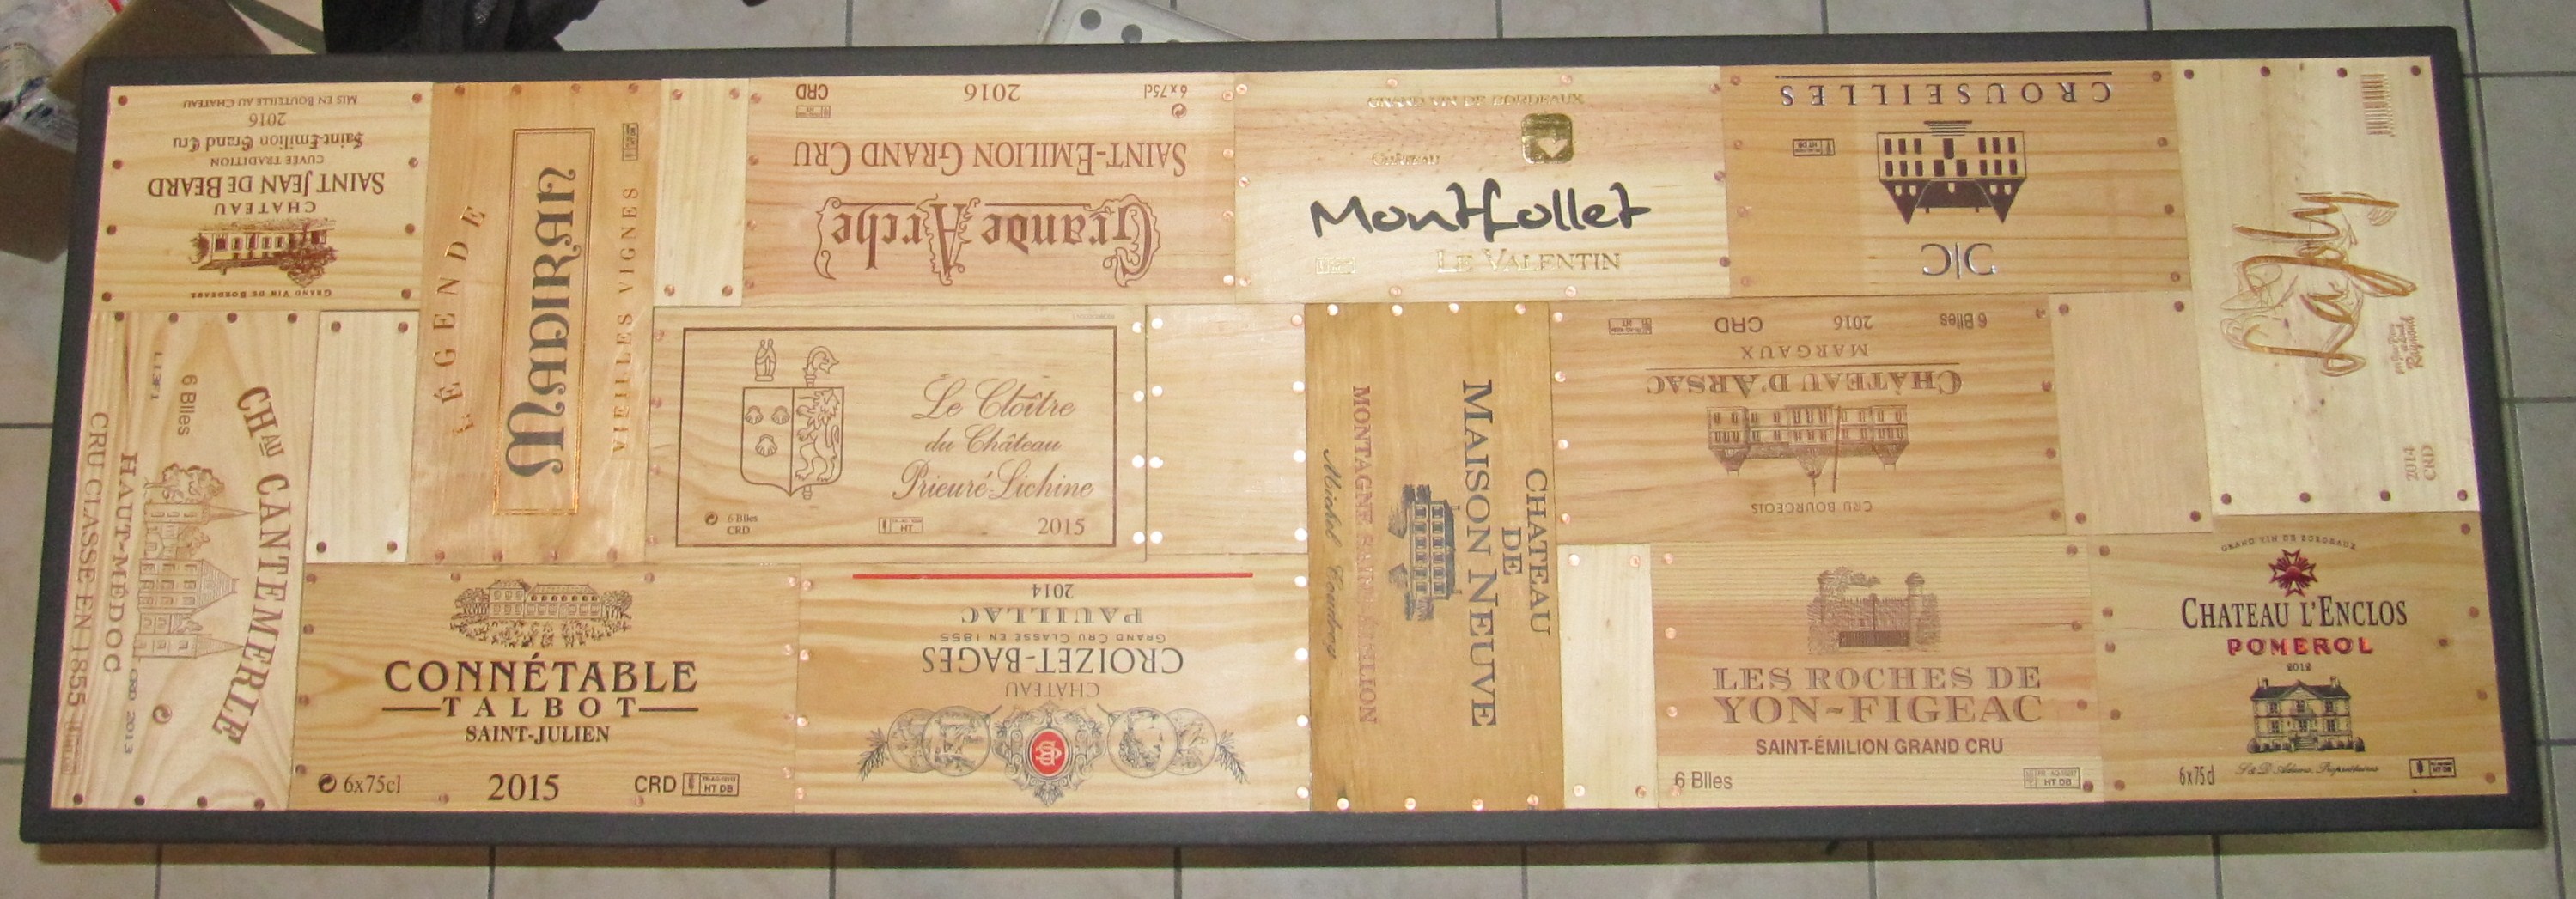 MIS EN BOUTEILLE AU CHATEAU
2016
Saint-Emilion Grand Cru
CUVÉE TRADITION
SAINT JEAN DE BEARD
CHATEAU
GRAND VIN DE BORDEAUX
LÉGENDE
MADIRAN
VIEILLES VIGNES
6x75cl
2016
CRD
SAINT-EMILION GRAND CRU
Grande Arche
GRAND VIN DE BORDEAUX
Château
Montfollet
LE VALENTIN
CROUSEILLES
C|C
Lajoly
Raymond
2014
CRD
CHAU CANTEMERLE
6 Blles
HAUT-MÉDOC
CRD 2013
CRU CLASSÉ EN 1855
Le Cloître
du Château
Prieuré-Lichine
6 Blles
CRD
HT
2015
CHATEAU
DE
MAISON NEUVE
MONTAGNE SAINT-ÉMILION
Michel Coudroy
6 Blles
2016
CRD
HT
MARGAUX
CHÂTEAU D'ARSAC
CRU BOURGEOIS
CONNÉTABLE
TALBOT
SAINT-JULIEN
6x75cl
2015
CRD
HT DB
2014
PAUILLAC
GRAND CRU CLASSÉ EN 1855
CROIZET-BAGES
CHATEAU
LES ROCHES DE
YON~FIGEAC
SAINT-ÉMILION GRAND CRU
6 Blles
HT DB
GRAND VIN DE BORDEAUX
CHATEAU L'ENCLOS
POMEROL
2012
6x75cl